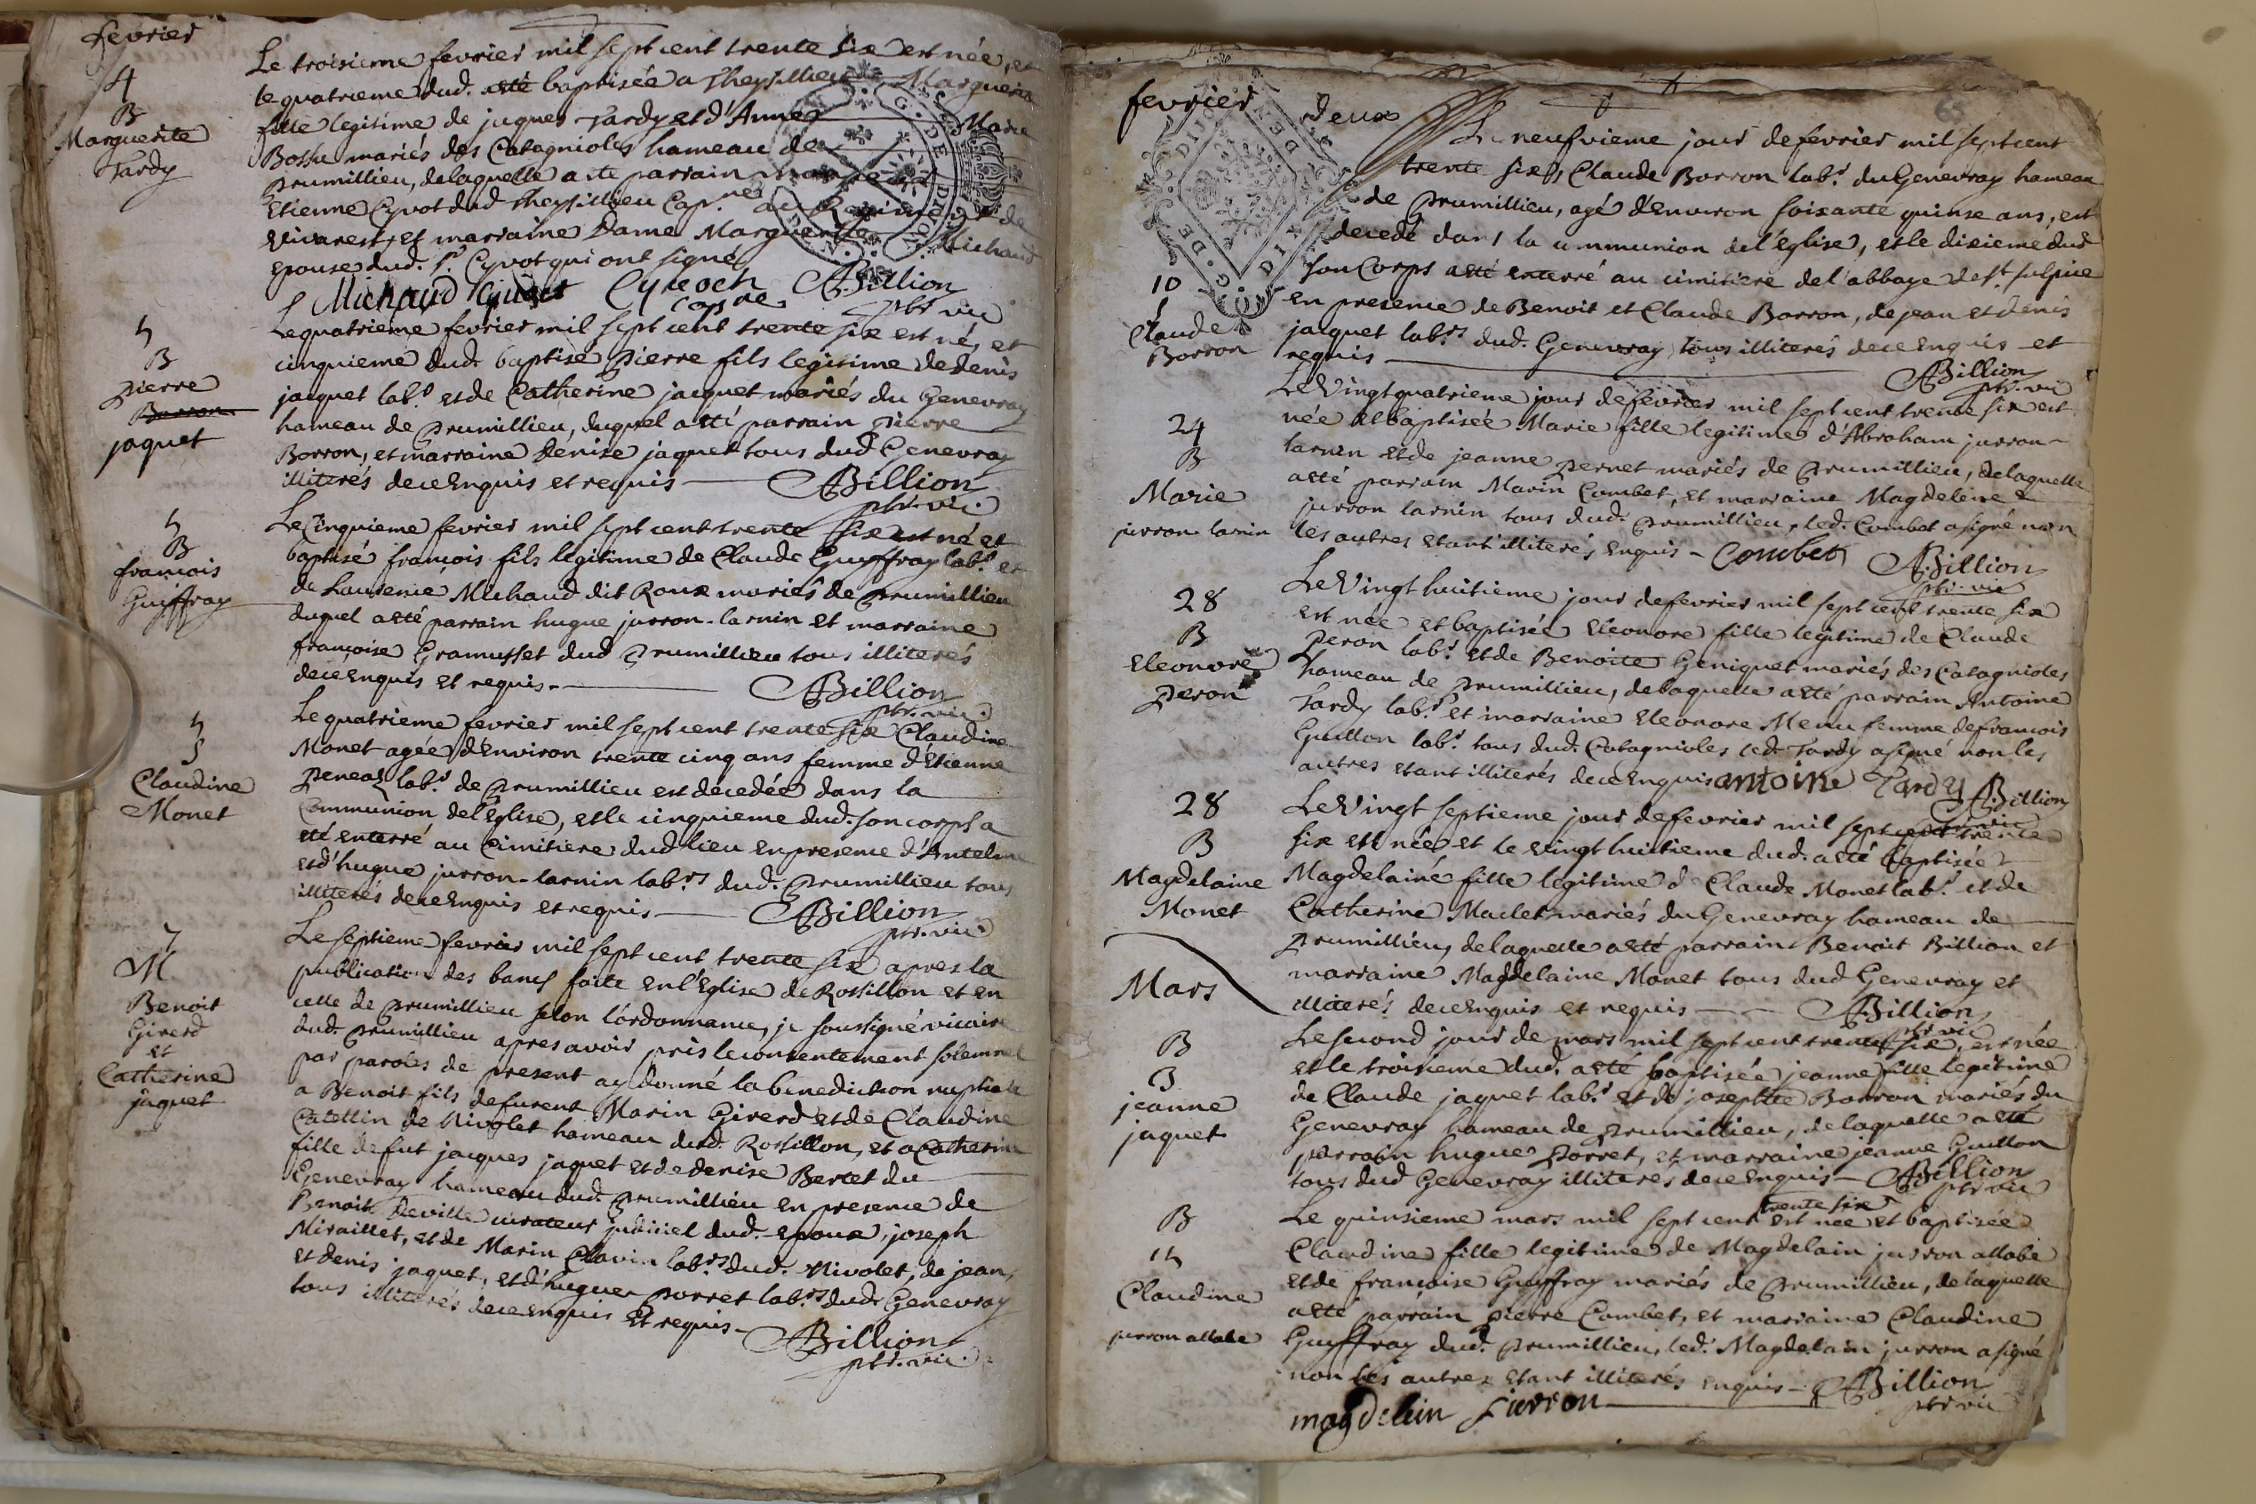 fevrier
4
B
Marguerite
Tardy
Le troisieme fevrier mil sept cent trente six est née, et
le quatrieme dud. a eté baptisée a Cheysillieu Marguerite
fille legitime de jaques Tardy et d'Anne Marie
Bossu mariés des Catagnioles hameau de
prumillieu, de laquelle a ete parrain
Etienne Cyvot dud Cheysillieu Cap.ne au Regime de
Vivarest, et marraine Dame Marguerite Michaud
epouse dud. Sr. Cyvot qui ont signé
Michaud ABillion
ptr. vic
5
B
pierre
Borron
jaquet
Le quatrieme fevrier mil sept cent trente six est né, et
cinquieme dud. baptisé pierre fils legitime de denis
jaquet lab.r et de Catherine jaquet mariés du Genevray
hameau de prumillieu, duquel a eté parrain pierre
Borron, et marraine denise jaquet tous dud Genevray
illiterés de ce enquis et requis — ABillion
ptr. vic.
5
B
francois
Guyffray
Le Cinquieme fevrier mil sept cent trente six est né et
baptisé francois fils legitime de Claude Guyffray lab.r et
de Laurence Michaud dit Roux mariés de prumillieu
duquel a eté parrain hugue jurron-larnin et marraine
françoise Gramusset dud prumillieu tous illiterés
de ce enquis et requis. — ABillion
ptr. vic.
5
S
Claudine
Monet
Le quatrieme fevrier mil sept cent trente six Claudine
Monet agée d'Environ trente cinq ans femme d'Etienne
peneaz lab.r de prumillieu est decedée dans la
Communion de l'Eglise, et le cinquieme dud. son corps a
eté enterré au Cimitiere dud lieu en presence d'Antelme
et d'hugue jurron-larnin lab.rs dud. prumillieu tous
illiterés de ce enquis et requis — ABillion
ptr. vic.
7
M
Benoit
Girerd
et
Catherine
jaquet
Le septieme fevrier mil sept cent trente six apres la
publication des bancs faite en l'Eglise de Rossillon et en
celle de prumillieu selon l'ordonnance, je soussigné vicaire
dud. prumillieu apres avoir pris le consentement solemnel
par paroles de present ay donné la benediction nuptiale
a Benoit fils de furent Marin Girerd et de Claudine
Catellin de Nivolet hameau dud. Rossillon, et a Catherine
fille de fut jacques jaquet et de denise Bertet du
Genevray hameau dud. prumillieu en presence de
Benoit Deville curateur judiciel dud. epoux, joseph
Miraillet, et de Marin Clavin lab.rs dud. Nivolet, de jean,
et denis jaquet, et d'hugue porret lab.rs dud. Genevray
tous illiterés de ce enquis et requis — ABillion
ptr. vic.
fevrier deux
10
S
Claude
Borron
Le neufvieme jour de fevrier mil sept cent
trente six Claude Borron lab.r du Genevray hameau
de prumillieu, agé d'Environ soixante quinze ans, est
decedé dans la communion de l'Eglise, et le dixieme dud
son Corps a eté enterré au cimitiere de l'abbaye de St. sulpice
en presence de Benoit et Claude Borron, de jean et denis
jaquet lab.rs dud. Genevray tous illiterés de ce enquis et
requis — ABillion
ptr. vic
24
B
Marie
jurron larnin
Le Vingt quatrieme jour de fevrier mil sept cent trente six est
née et baptisée Marie fille legitime d'Abraham jurron-
larnin et de jeanne pernet mariés de prumillieu, de laquelle
a eté parrain Marin Combet, et marraine Magdeleine
jurron larnin tous dud. prumillieu, led. Combet a signé non
les autres etant illiterés enquis — Combet ABillion
ptr. vic
28
B
Eleonore
peron
Le Vingt huitieme jour de fevrier mil sept cent trente six
est née et baptisée Eleonore fille legitime de Claude
peron lab.r et de Benoite Geniquet mariés des Catagnioles
hameau de prumillieu, de laquelle a eté parrain Antoine
Tardy lab.r et marraine Eleonore Menu femme de francois
Guillon lab.r tous dud. Catagnioles led. Tardy a signé non les
autres etant illiterés de ce enquis antoine Tardy ABillion
ptr. vic
28
B
Magdelaine
Monet
Le Vingt septieme jour de fevrier mil sept cent trente
six est née et le vingt huitieme dud. a eté baptisée
Magdelaine fille legitime de Claude Monet lab.r et de
Catherine Maclet mariés du Genevray hameau de
prumillieu, de laquelle a eté parrain Benoit Billion et
marraine Magdelaine Monet tous dud Genevray et
illiterés de ce enquis et requis — ABillion
ptr. vic
Mars
B
3
jeanne
jaquet
Le second jour de mars mil sept cent trente six, est née
et le troisieme dud. a eté baptisée jeanne fille legitime
de Claude jaquet lab.r et de josephte Borron mariés du
Genevray hameau de prumillieu, de laquelle a eté
parrain hugue porret, et marraine jeanne Guillon
tous dud Genevray illiterés de ce enquis — ABillion
ptr. vic
B
15
Claudine
jurron allabé
Le quinsieme mars mil sept cent trente six est née et baptisée
Claudine fille legitime de Magdelain jurron allabé
et de françoise Guyffray mariés de prumillieu, de laquelle
a eté parrain pierre Combet, et marraine Claudine
Guyffray dud. prumillieu, led. Magdelain jurron a signé
non les autres etant illiterés enquis — ABillion
ptr. vic
magdelain jurron